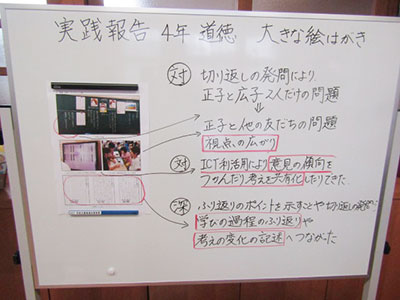 実践報告 4年 道徳 大きな絵はがき
対 切り返しの発問により
正子と広子2人だけの問題
⇓
正子と他の友だちの問題
視点の広がり
対 ICT利活用により意見の傾向を
つかんだり考えを共有化したりできた
深 ふり返りのポイントを示すことや切り返しの発問が
学びの過程のふり返りや
考えの変化の記述へつながった